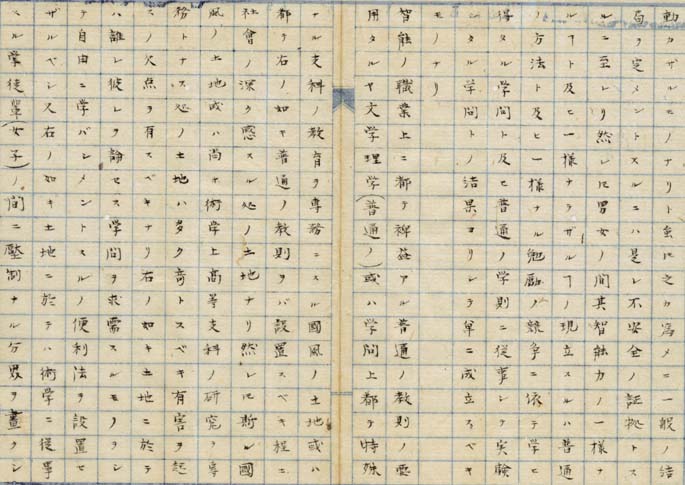 動カザルモノナリト虽𪜈之カ為メニ一般ノ結
局ヲ定メントスルニハ是レ不安全ノ証拠トス
ルニ至レリ然レ𪜈男女ノ間其智能力ノ一様ナ
ルヿト及ヒ一様ナラザルヿノ現立スルハ普通
ノ方法ト及ヒ一様ナル勉励ノ競争ニ依テ学ヒ
得タル学問ト及ヒ普通ノ学則ニ従事シテ実験
シタル学問トノ結果ヨリシテ単ニ成立スベキ
モノナリ
智能ノ職業上ニ都テ裨益アル普通ノ教則ノ要
用タルヤ文学理学(普通ノ)或ハ学問上都テ特殊
ナル支科ノ教育ヲ専務ニスル國風ノ土地或ハ
都テ右ノ如キ普通ノ教則ヲバ設置スベキ程ニ
社會ノ深ク感スル処ノ土地ナリ然レ𪜈斯ル國
風ノ土地或ハ尚ホ術学上高等支科ノ研究ヲ専
務トナス処ノ土地ハ多ク奇トスベキ有害ヲ起
スノ欠点ヲ有スベキナリ右ノ如キ土地ニ於テ
ハ誰レ彼レヲ セス学問ヲ求需スルモノヲシ
テ自由ニ学バシメントスルノ便利法ヲ設置セ
ザルベシ又右ノ如キ土地ニ於テハ術学ニ従事
スル学徒輩(女子)ノ間ニ壓制ナル分界ヲ畫クシ